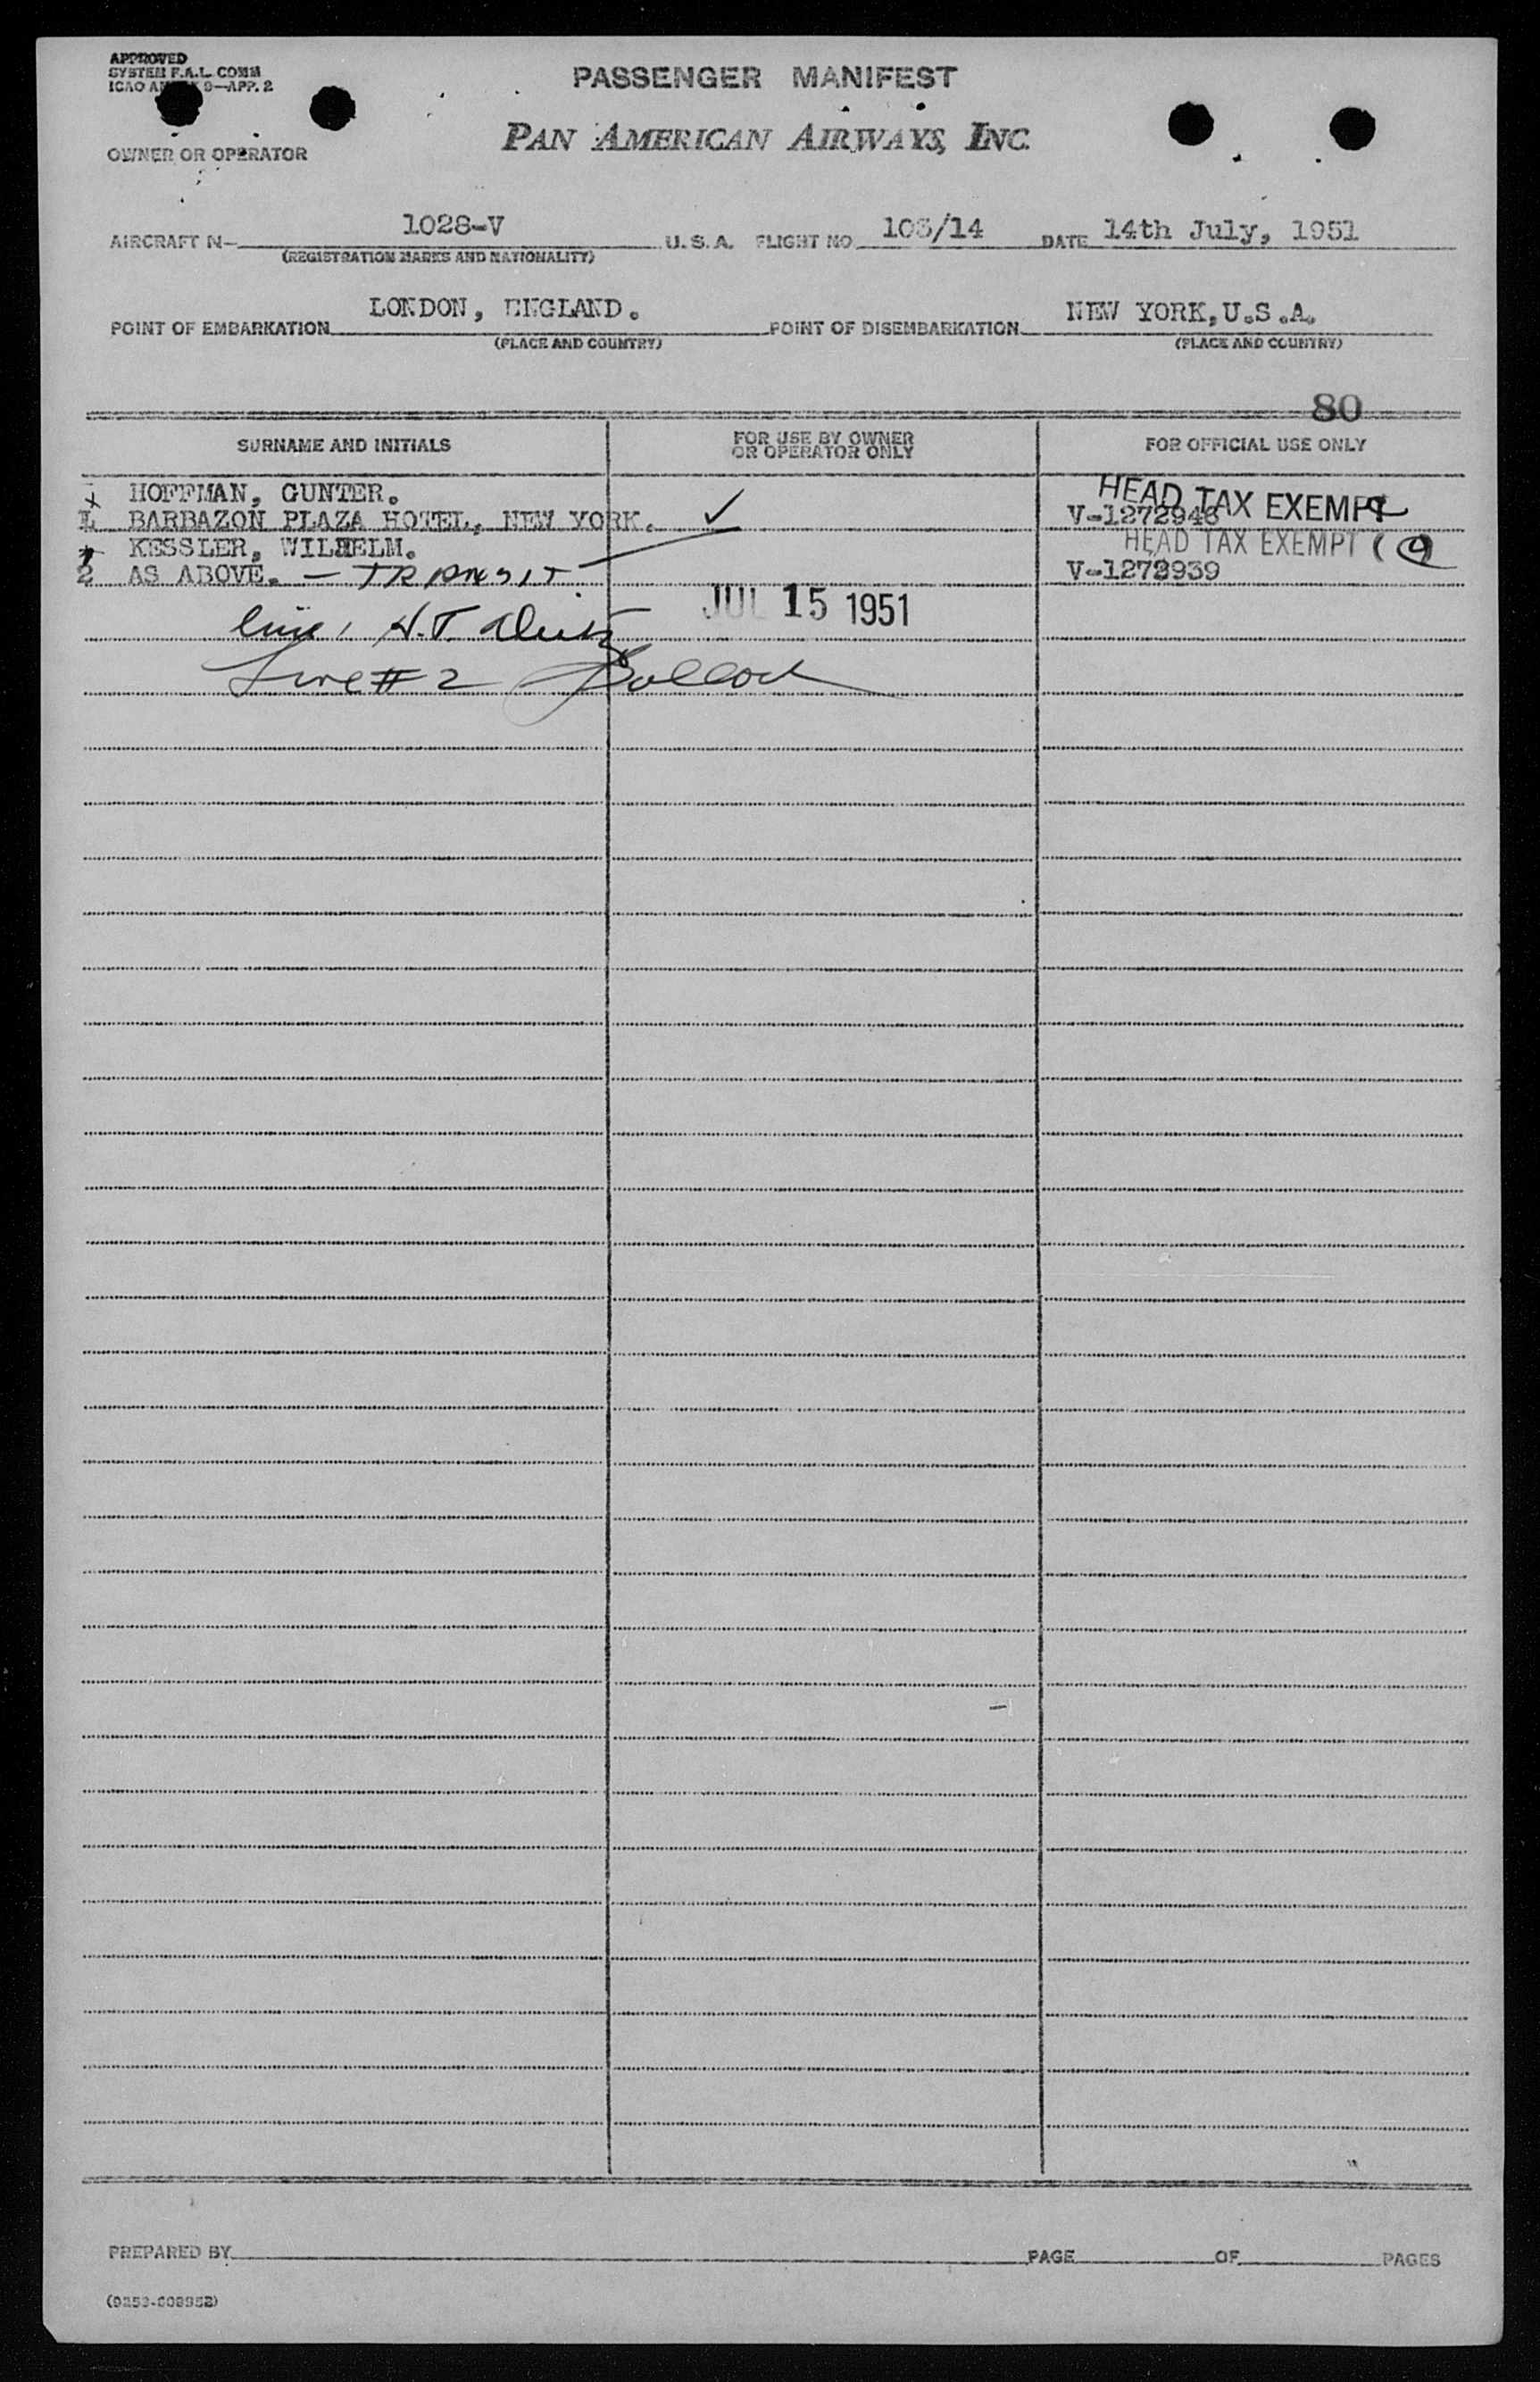 APPROVED
SYSTEM F.A.L. COMM
ICAO 9—APP. 2
PASSENGER MANIFEST
PAN AMERICAN AIRWAYS, INC.
OWNER OR OPERATOR
AIRCRAFT N— 1028-V U.S.A. FLIGHT NO 103/14 DATE 14th July, 1951
(REGISTRATION MARKS AND NATIONALITY)
POINT OF EMBARKATION LONDON, ENGLAND. POINT OF DISEMBARKATION NEW YORK,U.S.A.
(PLACE AND COUNTRY) (PLACE AND COUNTRY)
80
SURNAME AND INITIALS FOR USE BY OWNER OR OPERATOR ONLY FOR OFFICIAL USE ONLY
HOFFMAN, GUNTER. HEAD TAX EXEMPT
1 BARBAZON PLAZA HOTEL, NEW YORK. ✓ V-1272948
KESSLER, WILHELM. HEAD TAX EXEMPT
2 AS ABOVE. — TRANSIT V-1272939
JUL 15 1951
Line 1 H.T.
Line #2 Bullock
PREPARED BY PAGE OF PAGES